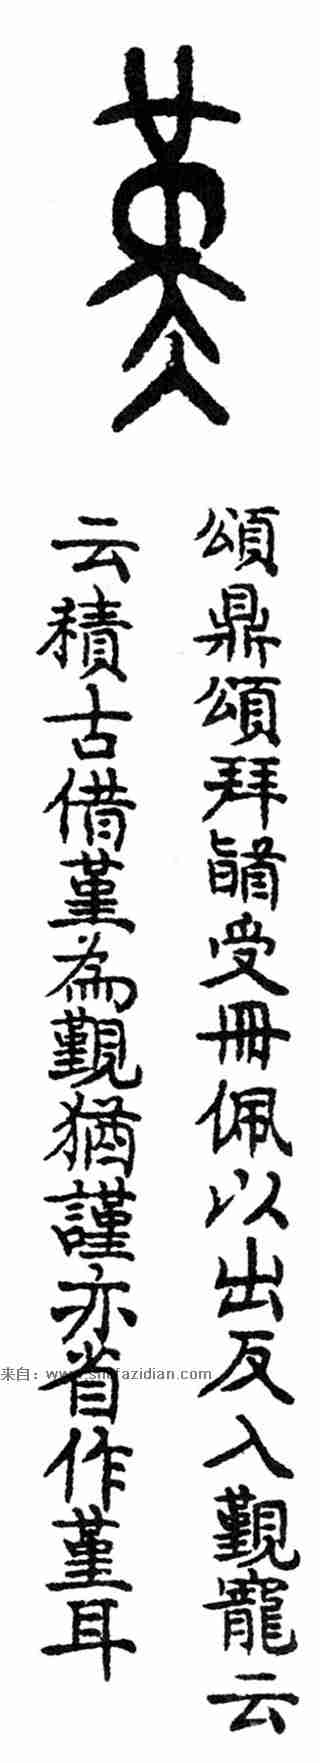 堇
頌鼎頌拜䭫受冊佩以出反入覲寵云
云積古借堇為覲猶謹亦省作堇耳
来自：www.shufazidian.com